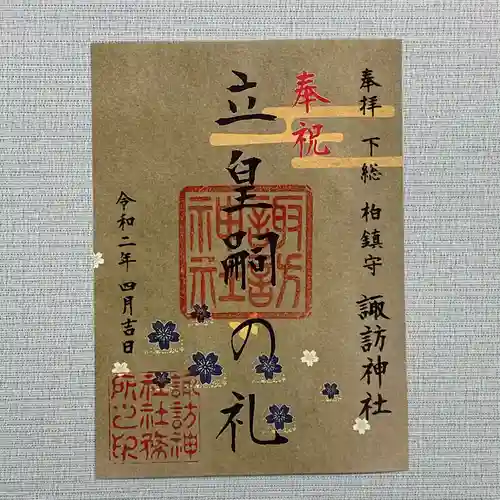 奉拝 下総 柏鎮守 諏訪神社
奉祝
立皇嗣の礼
諏訪神社
令和二年 四月吉日
諏訪神社社務所之印